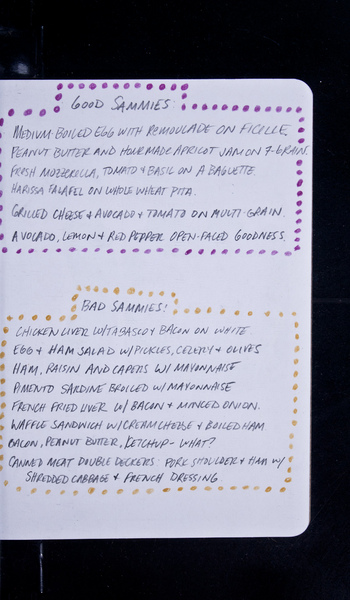 GOOD SAMMIES:
MEDIUM-BOILED EGG WITH REMOULADE ON FICELLE
PEANUT BUTTER AND HOUSEMADE APRICOT JAM ON 7-GRAIN.
FRESH MOZZERELLA, TOMATO & BASIL ON A BAGUETTE.
HARISSA FALAFEL ON WHOLE WHEAT PITA.
GRILLED CHEESE & AVOCADO & TOMATO ON MULTI-GRAIN.
AVOCADO, LEMON & RED PEPPER OPEN-FACED GOODNESS.
BAD SAMMIES!
CHICKEN LIVER W/TABASCO & BACON ON WHITE
EGG & HAM SALAD W/PICKLES, CELERY & OLIVES
HAM, RAISIN AND CAPERS W/ MAYONNAISE
PIMENTO SARDINE BROILED W/MAYONNAISE
FRENCH FRIED LIVER W/ BACON & MINCED ONION.
WAFFLE SANDWICH W/CREAM CHEESE & BOILED HAM
BACON, PEANUT BUTTER, KETCHUP - WHAT?
CANNED MEAT DOUBLE DECKERS: PORK SHOULDER & HAM W/
SHREDDED CABBAGE & FRENCH DRESSING.